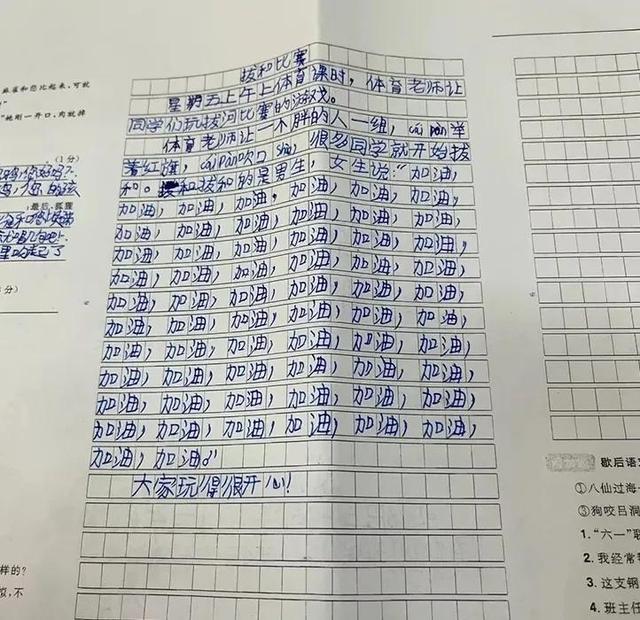 麻雀和您比起来，可就
她刚一开口，肉就掉
（1分）
最后，狐狸
分）
样的？
，不
拔和比赛
星期五上午上体育课时，体育老师让
同学们玩拔河比赛的游戏。
体育老师让一木胖的人一组，cái pàn洋
着红旗，cái pàn吹口，很多同学就开始拔
和。拔和的是男生，女生说：“加油，
加油，加油，加油，加油，加油，加油，
加油，加油，加油，加油，加油，加油，
加油，加油，加油，加油，加油，加油，
加油，加油，加油，加油，加油，加油，
加油，加油，加油，加油，加油，加油，
加油，加油，加油，加油，加油，加油，
加油，加油，加油，加油，加油，加油，
加油，加油，加油，加油，加油，加油，
加油，加油，加油，加油，加油，加油，
加油，加油，加油，加油，加油，加油，
加油，加油。”
大家玩得很开心！
歇后语
①八仙过海
③狗咬吕洞
1.“六一”联
2.我经常
3.这支钢
4.班主任